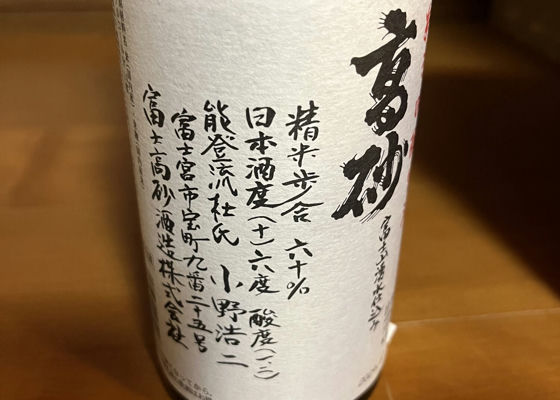 高砂
富士山湧水仕込み
精米歩合 六十%
日本酒度(十)六度 酸度(一、二)
能登流杜氏 小野浩二
富士宮市宝町九番二十五号
富士高砂酒造株式会社